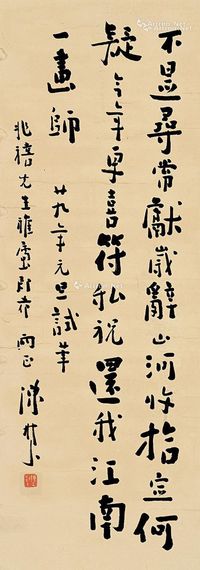 不是尋常獻歲辭山河收拾定何
疑今年早喜符私祝還我江南
一畫師
廿九年元旦試筆
兆禧先生雅屬即希兩正
陳樹人